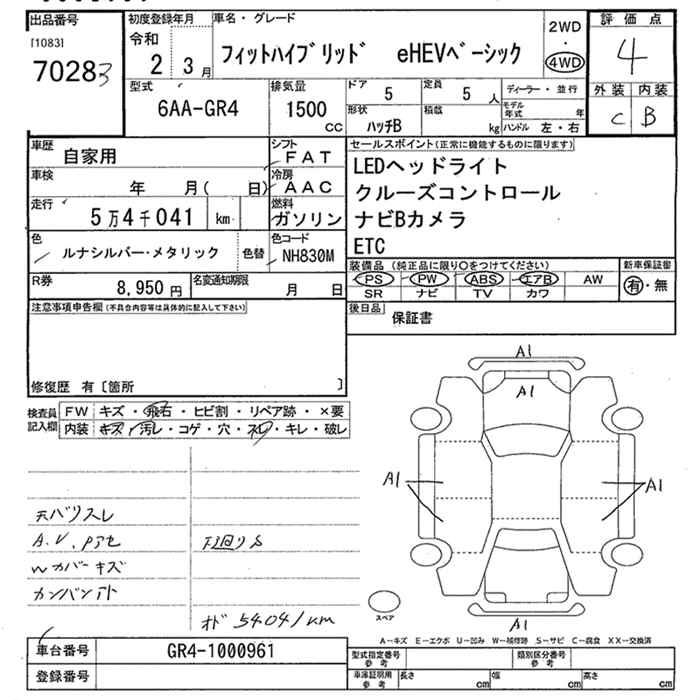 出品番号
[1083]
70283
初度登録年月
令和
2 3月
車名・グレード
フィットハイブリッド eHEVベーシック
2WD
・
4WD
評価点
4
外装 内装
C B
型式
6AA-GR4
排気量
1500
CC
ドア
5
定員
5 人
形状
ハッチB
積載
kg
ディーラー・並行
モデル年式 年
ハンドル 左・右
車歴
自家用
シフト
FAT
車検
年 月( 日)
冷房
AAC
走行
5万4千041 km
燃料
ガソリン
色
ルナシルバー・メタリック
色替
色コード
NH830M
R券
8,950 円
名変通知期限
月 日
セールスポイント(正常に機能するものに限ります)
LEDヘッドライト
クルーズコントロール
ナビBカメラ
ETC
装備品(純正品に限り○をつけてください)
PS PW ABS エアB AW
SR ナビ TV カワ
新車保証書
有・無
後日品
保証書
注意事項申告欄(不具合内容等は具体的に記入して下さい)
修復歴 有〔箇所 〕
検査員記入欄
FW キズ・飛石・ヒビ割・リペア跡・×要
内装 キズ・汚レ・コゲ・穴・スレ・キレ・破レ
天バリスレ
カンバンアト
オド 54041km
A1
A1
A1
A1
A1
スペア
A-キズ E-エクボ U-凹み W-補修跡 S-サビ C-腐食 XX-交換済
車台番号
GR4-1000961
登録番号
型式指定番号
参考
類別区分番号
参考
車庫証明用
参考
長さ cm
幅 cm
高さ cm